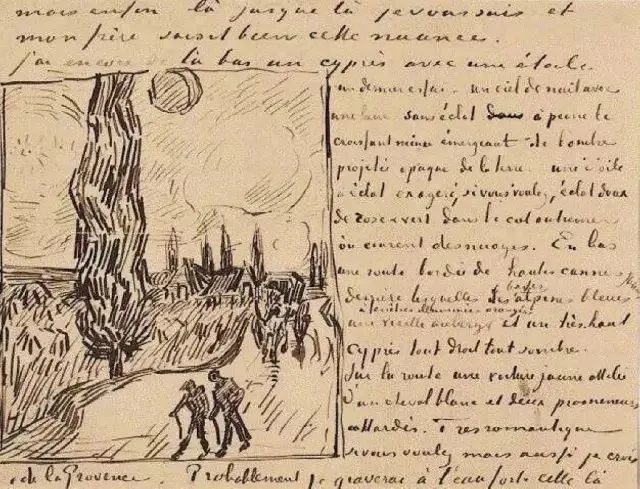 mais enfin là jusque là je vous sais et
mon frère saisit bien cette nuance.
j'ai encore de là bas un cyprès avec une étoile
un dernier essai - un ciel de nuit avec
une lune sans éclat dans à peine le
croissant mince émergeant de l'ombre
projetée opaque de la terre - une étoile
à éclat exagéré, si vous voulez, éclat doux
de rose & vert dans le ciel outremer
où courent des nuages. En bas
une route bordée de hautes cannes
derrière lesquelles les basses alpines bleues
à fenêtres illuminées orangées
une vieille auberge et un très haut
cyprès tout droit tout sombre.
Sur la route une voiture jaune attelée
d'un cheval blanc et deux promeneurs
attardés. Très romantique
si vous voulez mais aussi je crois
de la Provence. Probablement je graverai à l'eau forte celle là